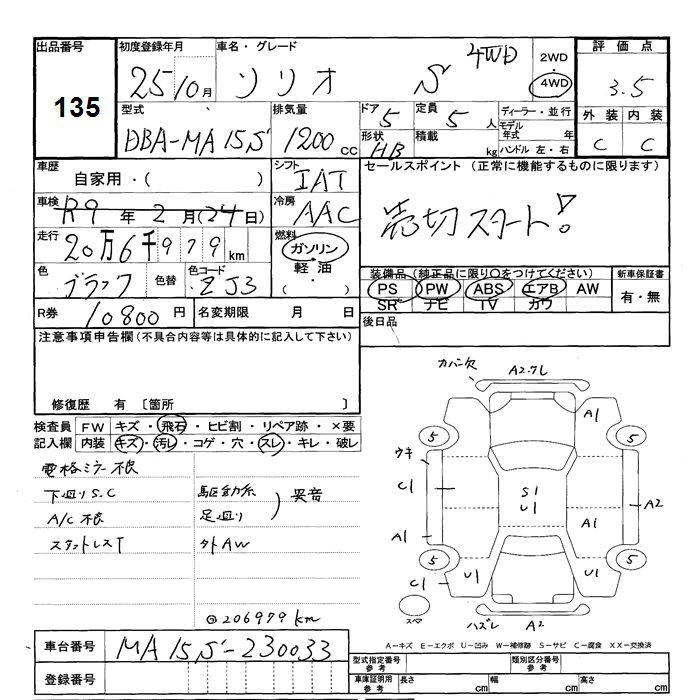 出品番号
135
初度登録年月
25/10月
車名・グレード
ソリオ S 4WD
2WD・4WD
評価点
3.5
外装 内装
C C
型式
DBA-MA15S
排気量
1200cc
ドア 5
形状 HB
定員 5人
積載 kg
ディーラー・並行
モデル年式 年
ハンドル 左・右
車歴
自家用・( )
シフト
IAT
セールスポイント (正常に機能するものに限ります)
売切スタート!
車検
R9年2月(24日)
冷房
AAC
走行
20万6千979km
燃料
ガソリン
軽油
( ・ )
色
ブラック
色替
色コード
ZJ3
装備品 (純正品に限り〇をつけてください)
PS PW ABS エアB AW
SR ナビ TV カワ
新車保証書
有・無
R券 10800円
名変期限 月 日
後日品
注意事項申告欄(不具合内容等は具体的に記入して下さい)
修復歴 有 〔箇所 〕
検査員記入欄
FW キズ・飛石・ヒビ割・リペア跡・×要
内装 キズ・汚レ・コゲ・穴・スレ・キレ・破レ
電格ミラー不良
下廻りS.C
A/C不良
スタットレスT
駆動系
足廻り
) 異音
外AW
@206979km
カバー欠
A2.ワレ
A1
5
5
ウキ
C1
S1
U1
A2
A1
A1
5
5
C1
U1
U1
スペア
ハズレ
A2
A-キズ E-エクボ U-凹み W-補修跡 S-サビ C-腐食 XX-交換済
車台番号
MA15S-230033
登録番号
型式指定番号 参考
類別区分番号 参考
車庫証明用 参考
長さ cm
幅 cm
高さ cm